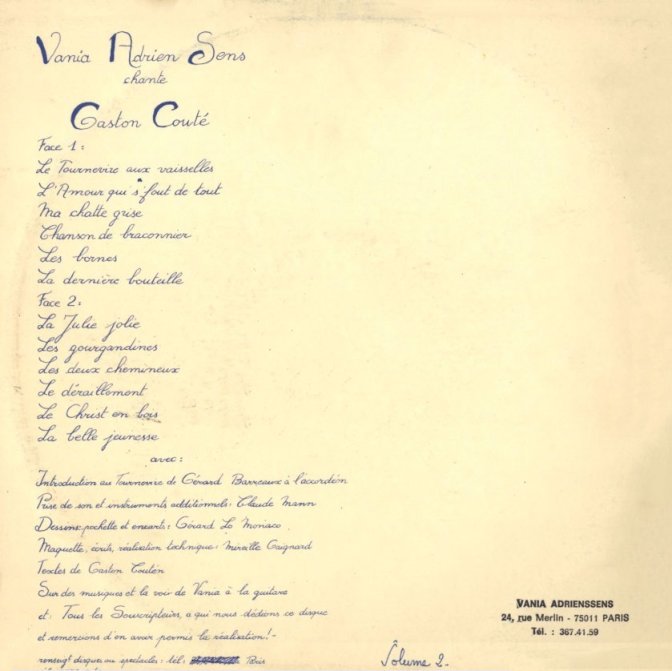 Vania Adrien Sens
chante
Gaston Couté
Face 1 :
Le Tournevire aux vaisselles
L'Amour qui s'fout de tout
Ma chatte grise
Chanson de braconnier
Les bornes
La dernière bouteille
Face 2 :
La Julie jolie
Les gourgandines
Les deux chemineux
Le déraillement
Le Christ en bois
La belle jeunesse
avec :
Introduction au Tournevire de Gérard Barreaux à l'accordéon
Prise de son et instruments additionnels : Claude Mann
Dessins pochette et encarts : Gérard Lo Monaco
Maquette, écrits, réalisation technique : Mireille Gaignard
Textes de Gaston Couté
Sur des musiques et la voix de Vania à la guitare
et : Tous les Souscripteurs, a qui nous dédions ce disque
et remercions d'en avoir permis la réalisation ! -
renseigt disque ou spectacles : tél : Paris
Volume 2.
VANIA ADRIENSSENS
24, rue Merlin - 75011 PARIS
Tél. : 367.41.59